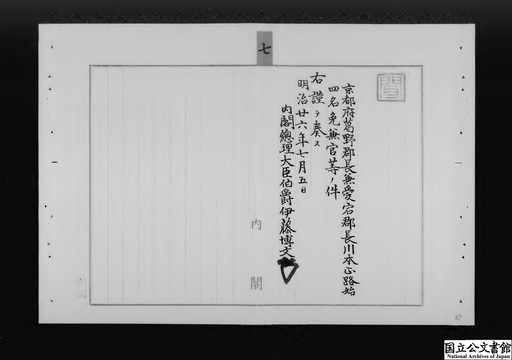 七
京都府葛野郡長兼愛宕郡長川本正路始
四名免兼官等ノ件
右謹テ奏ス
明治廿六年七月五日
内閣總理大臣伯爵伊藤博文
内閣
国立公文書館
National Archives of Japan